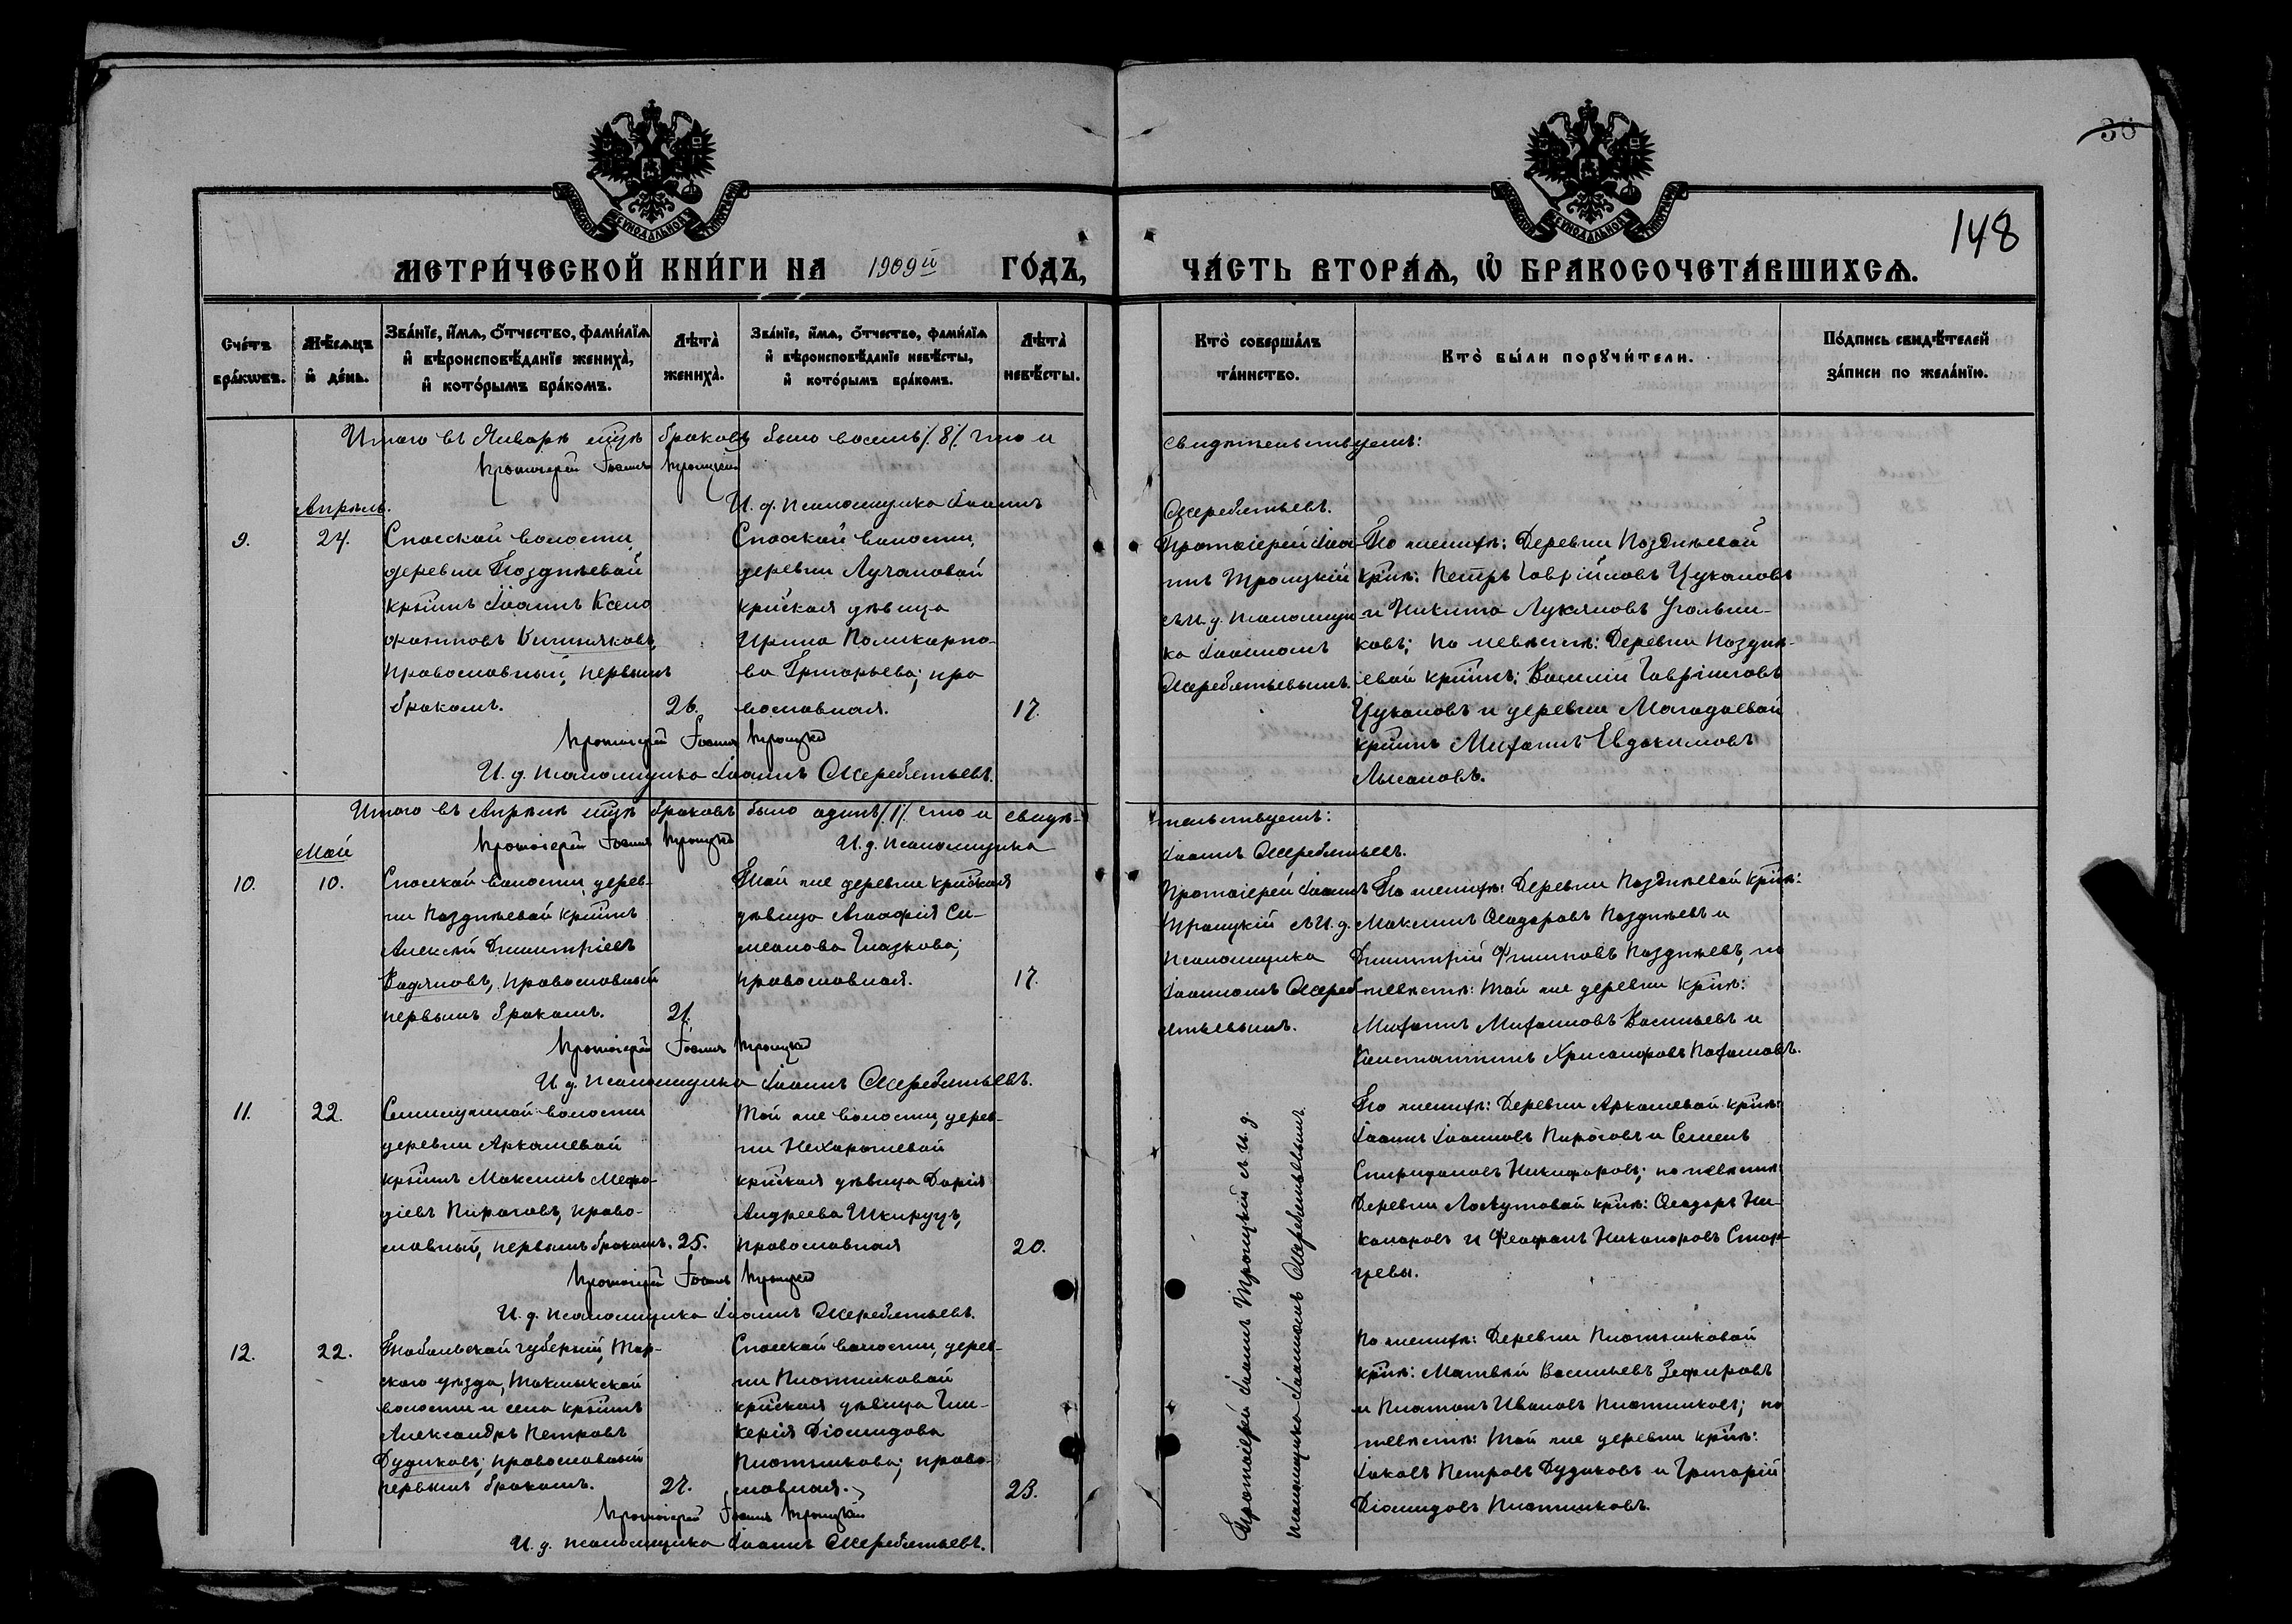 36
148
МЕТРИ́ЧЕСКОЙ КНИ́ГИ НА 1909й ГО́ДЪ,
ЧА́СТЬ ВТОРА́Ѧ, Ѽ БРАКОСОЧЕТА́ВШИХСѦ.
Сче́тъ бра́кѡвъ.
Мѣ́сѧцъ и҆ де́нь.
Зва́нїе, и҆́мѧ, о҆́тчество, фами́лїѧ
и҆ вѣроисповѣ́данїе жениха̀,
и҆ кото́рымъ бра́комъ.
Лѣта̀ жениха̀.
Зва́нїе, и҆́мѧ, о҆́тчество, фами́лїѧ
и҆ вѣроисповѣ́данїе невѣ́сты,
и҆ кото́рымъ бра́комъ.
Лѣта̀ невѣ́сты.
Кто̀ соверша́лъ
та́инство.
Кто̀ бы́ли порꙋчи́тели.
По́дпись свидѣ́телей
за́писи по жела́нїю.
Итого въ Январѣ мцѣ браковъ было восемь /8/ что и
свидѣтельствуемъ:
Протоіерей Іоаннъ Троицкій
И. д. псаломщика Іоаннъ
Жеребятьевъ.
Апрѣль.
9.
24.
Спасской волости,
деревни Позднѣевой
кр̃инъ Іоаннъ Ксено
фонтовъ Вишняковъ,
православный, первымъ
бракомъ.
26.
Спасской волости,
деревни Лучановой
кр̃нская дѣвица
Ирина Поликарпо-
ва Григорьева; пра
вославная.
17.
Протоіерей Іоан-
нъ Троицкій
съ и. д. псаломщи-
ка Іоанномъ
Жеребятьевымъ.
По женихѣ: Деревни Позднѣевой
кр̃не: Петръ Гаврііловъ Цукановъ
и Никита Лукяновъ Угольни-
ковъ; по невѣстѣ: Деревни Поздн-
ѣевой кр̃инъ: Василій Гаврііловъ
Цукановъ и деревни Магадаевой
кр̃инъ Михаилъ Евдокимовъ
Протоіерей Іоаннъ Троицкій
И. д. псаломщика Іоаннъ Жеребятьевъ.
Итого въ Апрѣлѣ мцѣ браковъ было одинъ /1/ что и свидѣ-
тельствуемъ:
Протоіерей Іоаннъ Троицкій
И. д. псаломщика
Іоаннъ Жеребятьевъ.
Май
10.
10.
Спасской волости, дерев-
ни Позднѣевой кр̃инъ
Алексѣй Димитріевъ
православный
первымъ бракомъ.
21.
Той же деревни кр̃нская
дѣвица Агафія Си-
меонова Глазкова;
православная.
17.
Протоіерей Іоаннъ
Троицкій съ И. д.
псаломщика
Іоанномъ Жереб-
ятьевымъ.
По женихѣ: Деревни Позднѣевой кр̃не:
Максимъ Ѳеодоровъ Позднѣевъ и
Димитрій Филиповъ Позднѣевъ, по
невѣстѣ: той же деревни кр̃не:
Михаилъ Михаиловъ Васильевъ и
Константинъ Хрисанфовъ
Протоіерей Іоаннъ Троицкій
И. д. псаломщика Іоаннъ Жеребятьевъ.
11.
22.
Семилужной волости
деревни Аркашевой
кр̃инъ Максимъ Мефо-
діевъ Пироговъ, право-
славный, первымъ бракомъ.
25.
Той же волости, дерев-
ни Нехорошевой
кр̃нская дѣвица Дарія
Андреева Шкируцъ,
православная
20.
Протоіерей Іоаннъ Троицкій съ И. д.
псаломщика Іоанномъ Жеребятьевымъ
По женихѣ: Деревни Аркашевой кр̃не:
Іоаннъ Іоанновъ Пироговъ и Семенъ
Спиридоновъ Никифоровъ; по невѣстѣ:
Деревни Лоскутовой кр̃не: Ѳеодоръ Ни-
каноровъ и Феофанъ Никаноровъ
Протоіерей Іоаннъ Троицкій
И. д. псаломщика Іоаннъ Жеребятьевъ.
12.
22.
Тобольской губерніи, Тар-
скаго уѣзда, Такмыкской
волости и села кр̃инъ
Александръ Петровъ
Дудиковъ; православный
первымъ бракомъ.
27.
Спасской волости, дерев-
ни Плотниковой
кр̃нская дѣвица Гли-
керія Діомидова
Плотникова; право-
славная.
23.
По женихѣ: Деревни Плотниковой
кр̃не: Матвѣй Васильевъ Зефировъ
и Платонъ Ивановъ Плотниковъ; по
невѣстѣ: той же деревни кр̃не:
Іаковъ Петровъ Дудиковъ и Григорій
Діомидовъ Плотниковъ.
Протоіерей Іоаннъ Троицкій
И. д. псаломщика Іоаннъ Жеребятьевъ.